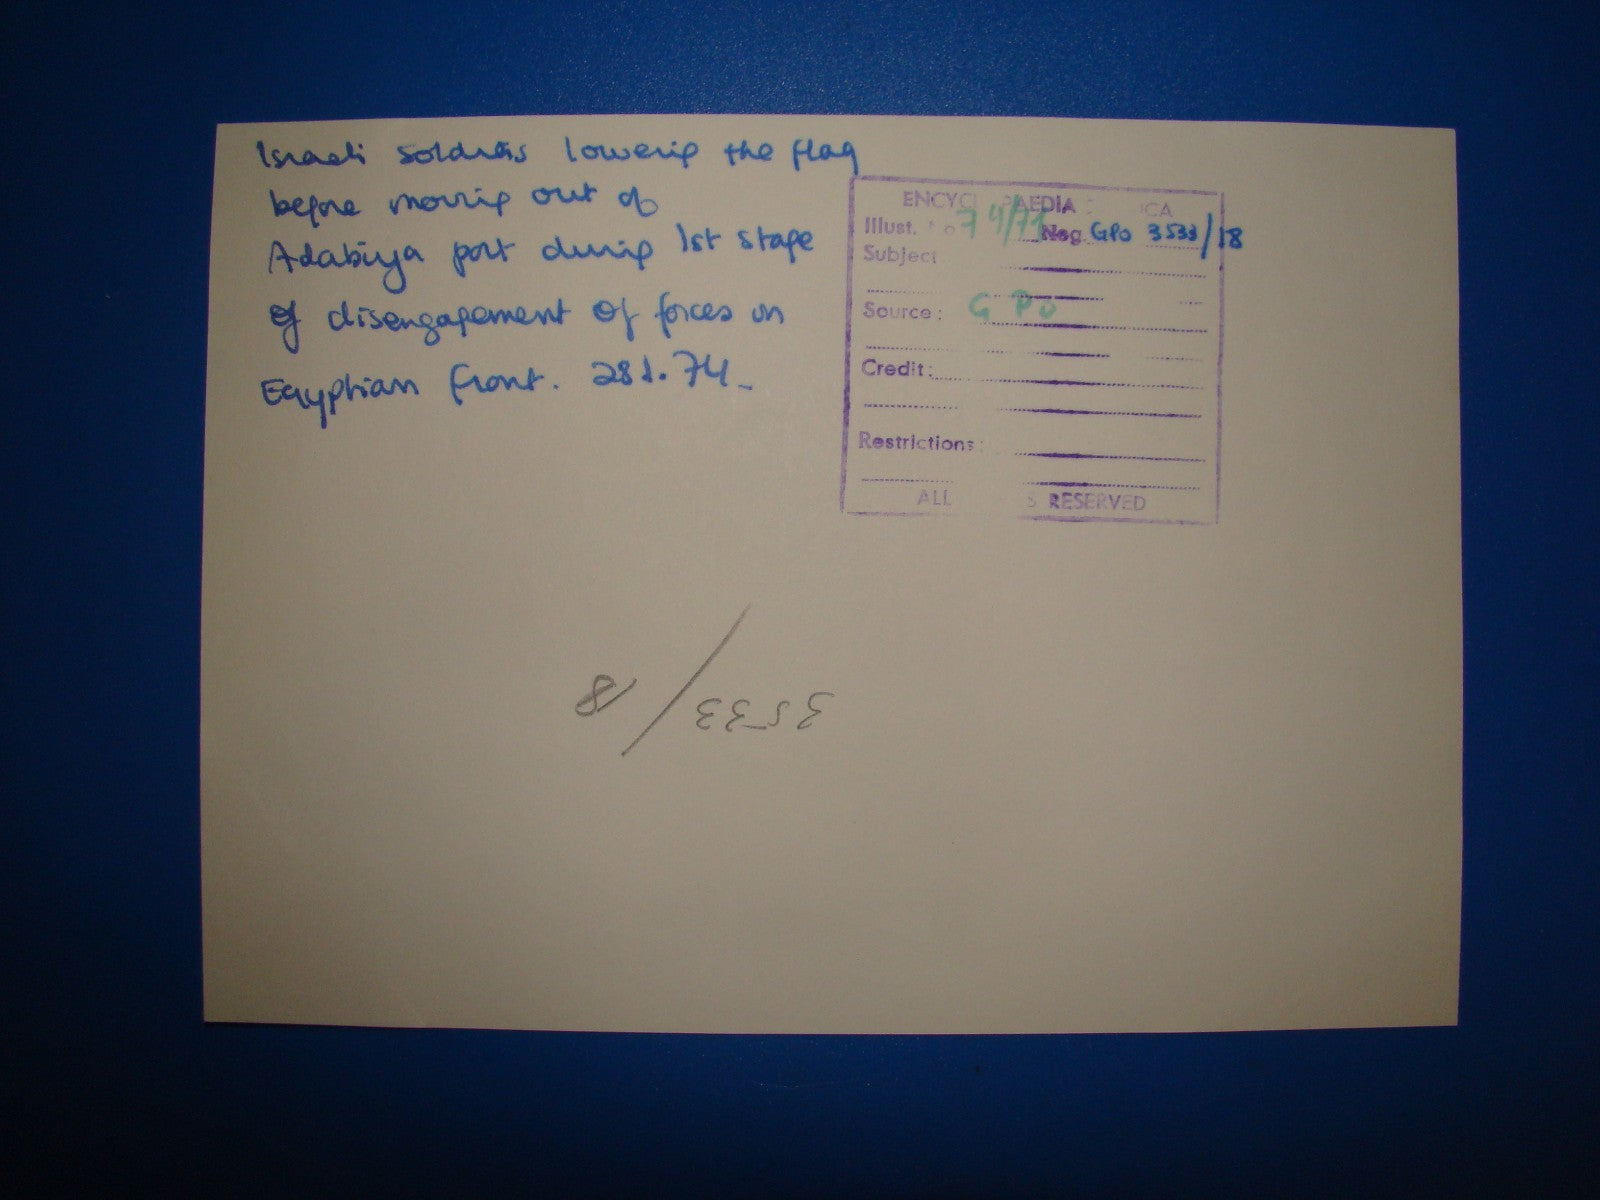 Israeli soldiers lowering the flag
before moving out of
Adabiya port during 1st stage
of disengagement of forces on
Egyptian front. 28 1. 74
ENCYC PAEDIA ICA
Illust. 74/71 Neg GPO 3533/18
Subject
Source: GPO
Credit:
Restrictions:
ALL S RESERVED
3533/18